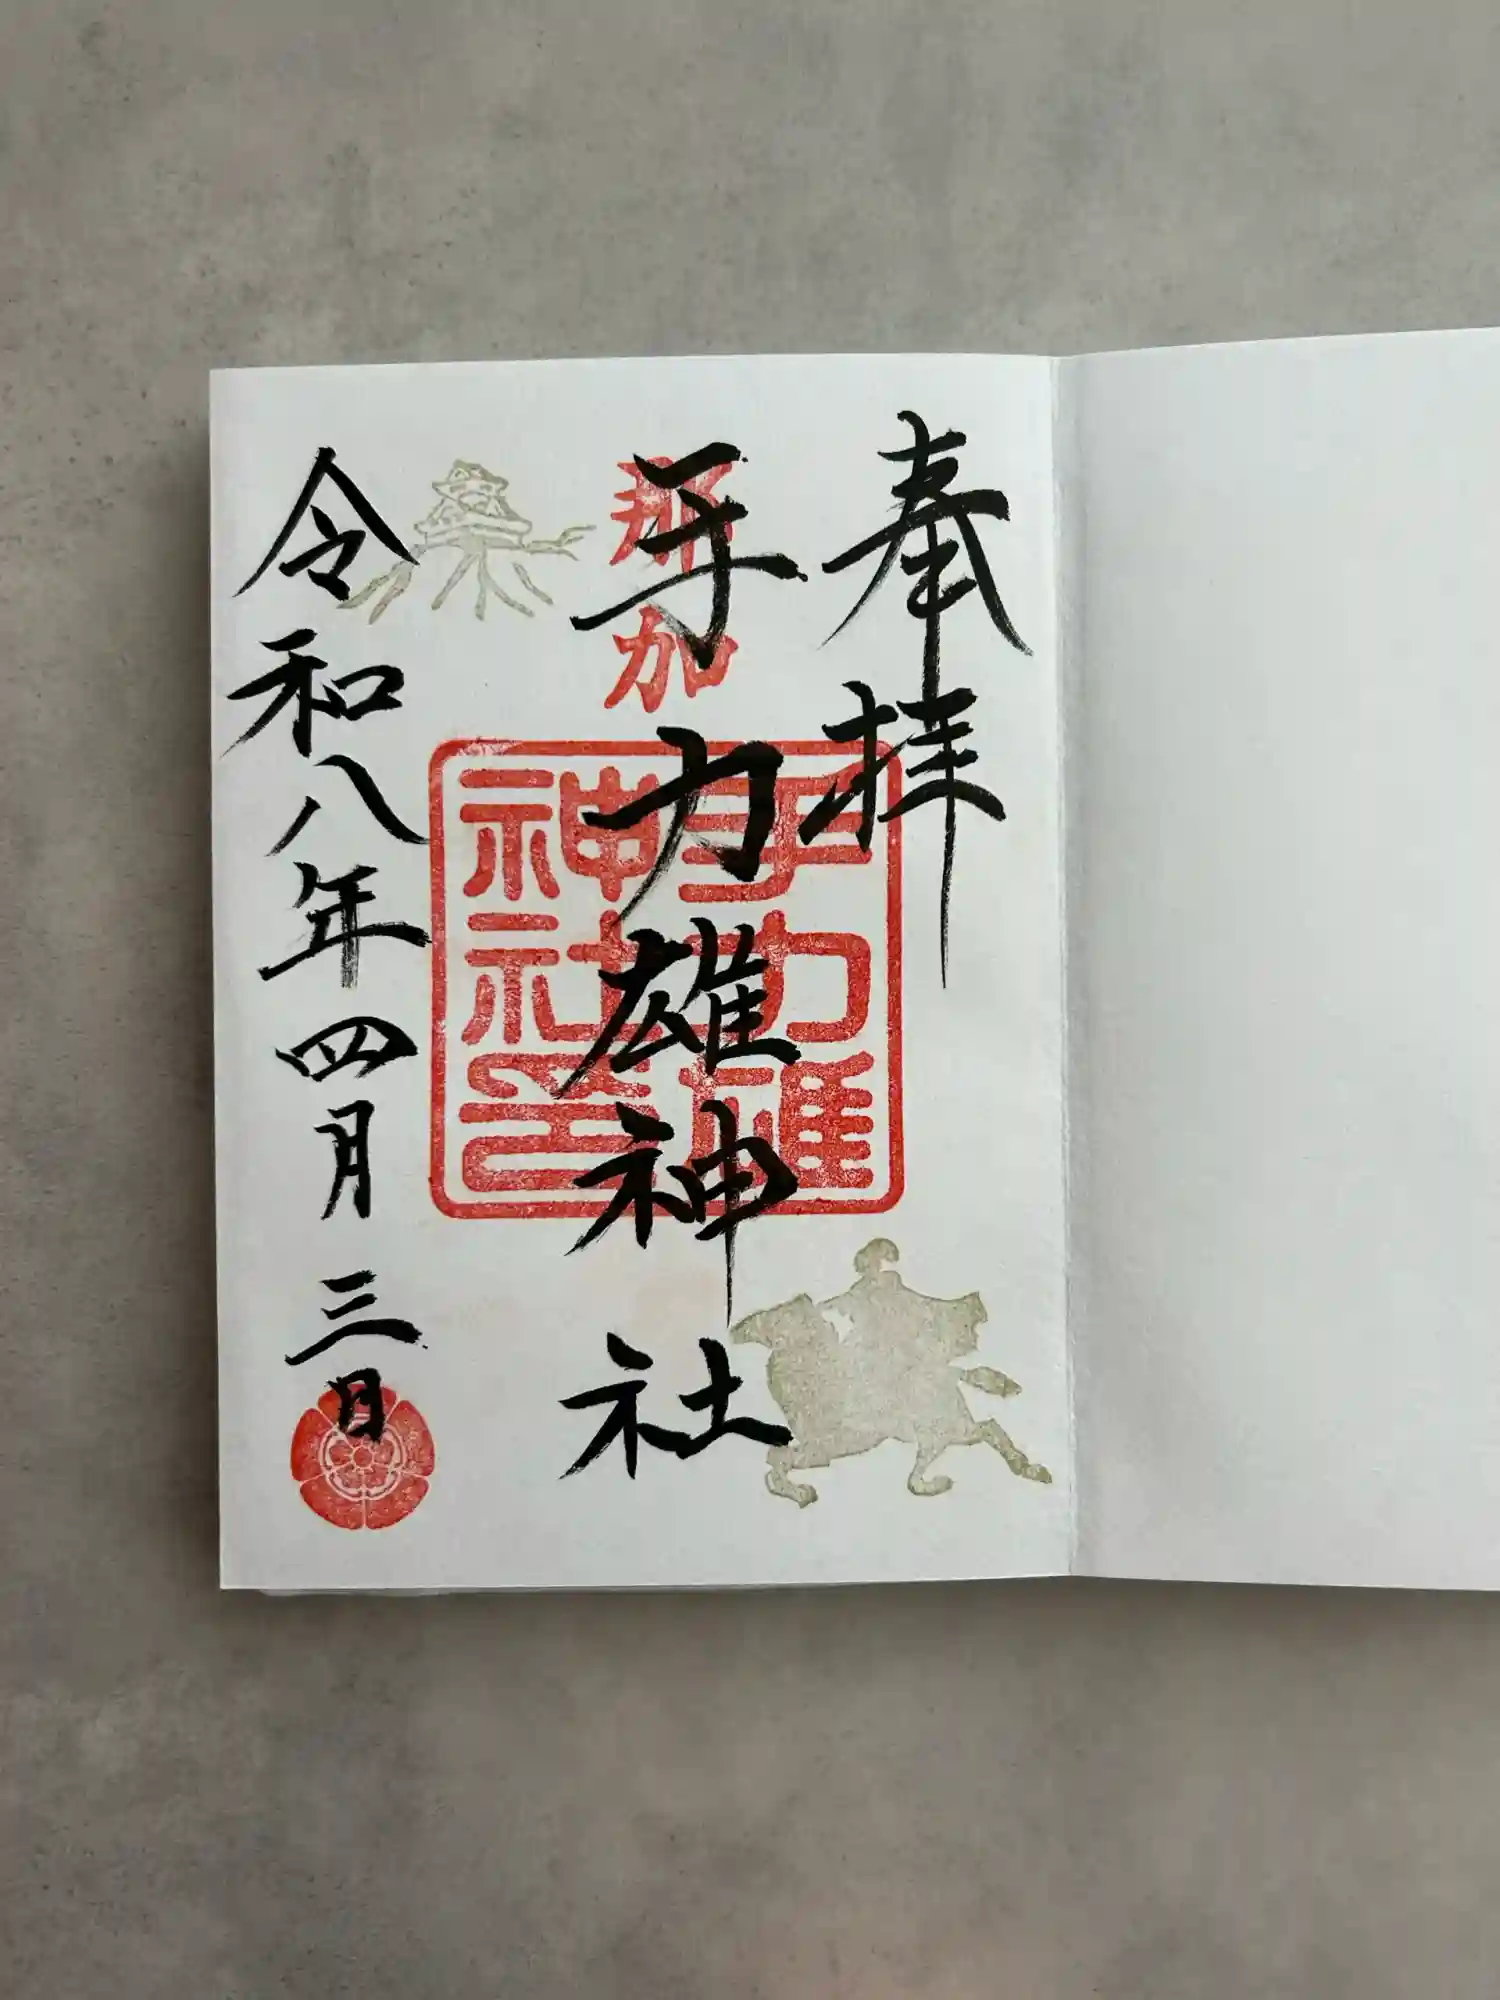 奉拝
那加
手力雄神社
手力雄
神社印
令和八年四月三日